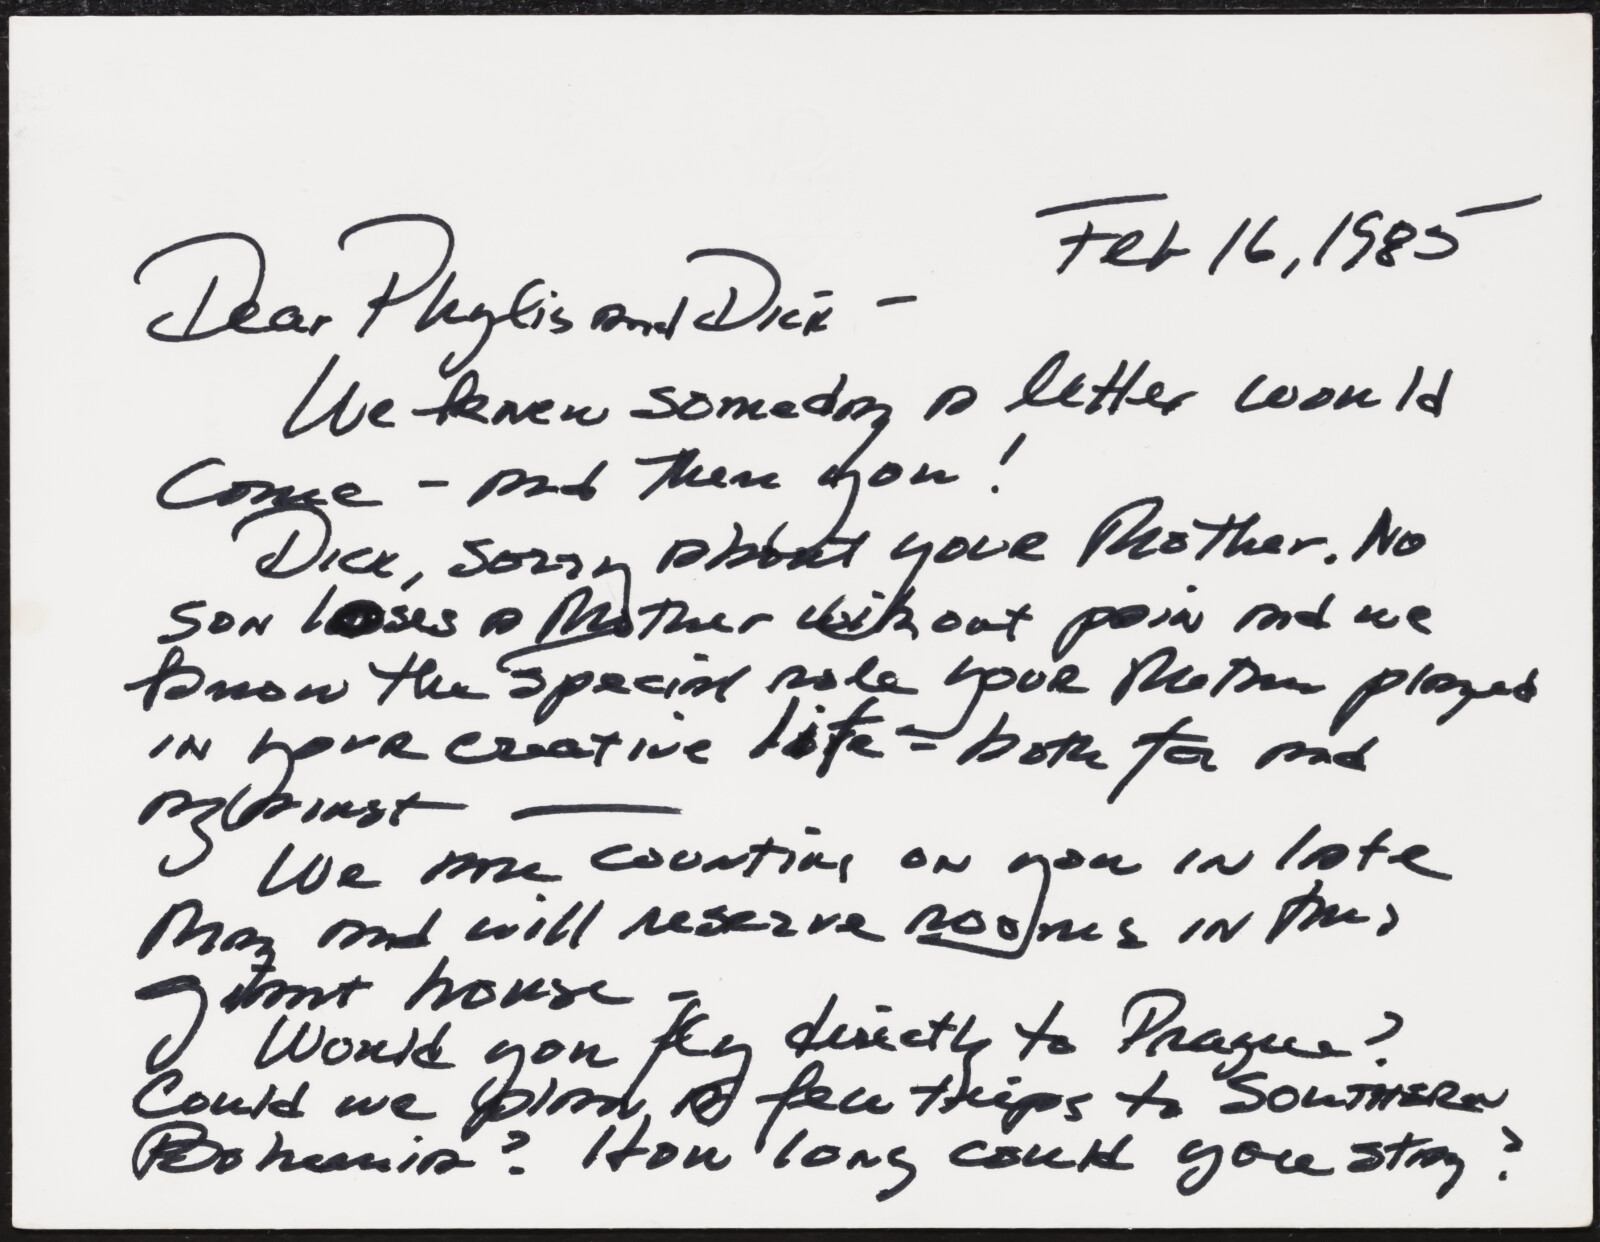 Feb 16, 1985
Dear Phylis and Dick -
We knew someday a letter would
come - and then you!
Dick, sorry about your Mother. No
son loses a Mother without pain and we
know the special role your Mother played
in your creative life - both for and
against —
We are counting on you in late
May and will reserve rooms in this
giant house -
Would you fly directly to Prague?
Could we plan a few trips to Southern
Bohemia? How long could you stay?